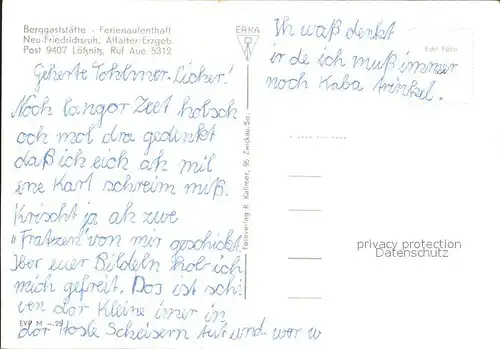 Berggaststätte - Ferienaufenthalt
Neu-Friedrichsruh, Affalter/Erzgeb.
Post 9407 Lößnitz, Ruf Aue 5312
Geherte Tohlmor-Licher!
Noch langor Zeet hobsch
och mol dra gedenkt
daß ich eich ah mil
ene Karl schreim muß.
Krischt ja ah zwe
"Fratzen" von mir geschickt
Iber euer Bildeln hob ich
mich gefreit. Dos ist sch
ven dor Kleine imer in
dor Hosle Scheisern tut und wor w
EVP M -.25
ERKA
Fotoverlag R. Kallmer, 95 Zwickau Sa.
Ih waß denkt
ir de ich muß immer
noch Kaba trinkel.
Echt Foto
privacy protection
Datenschutz